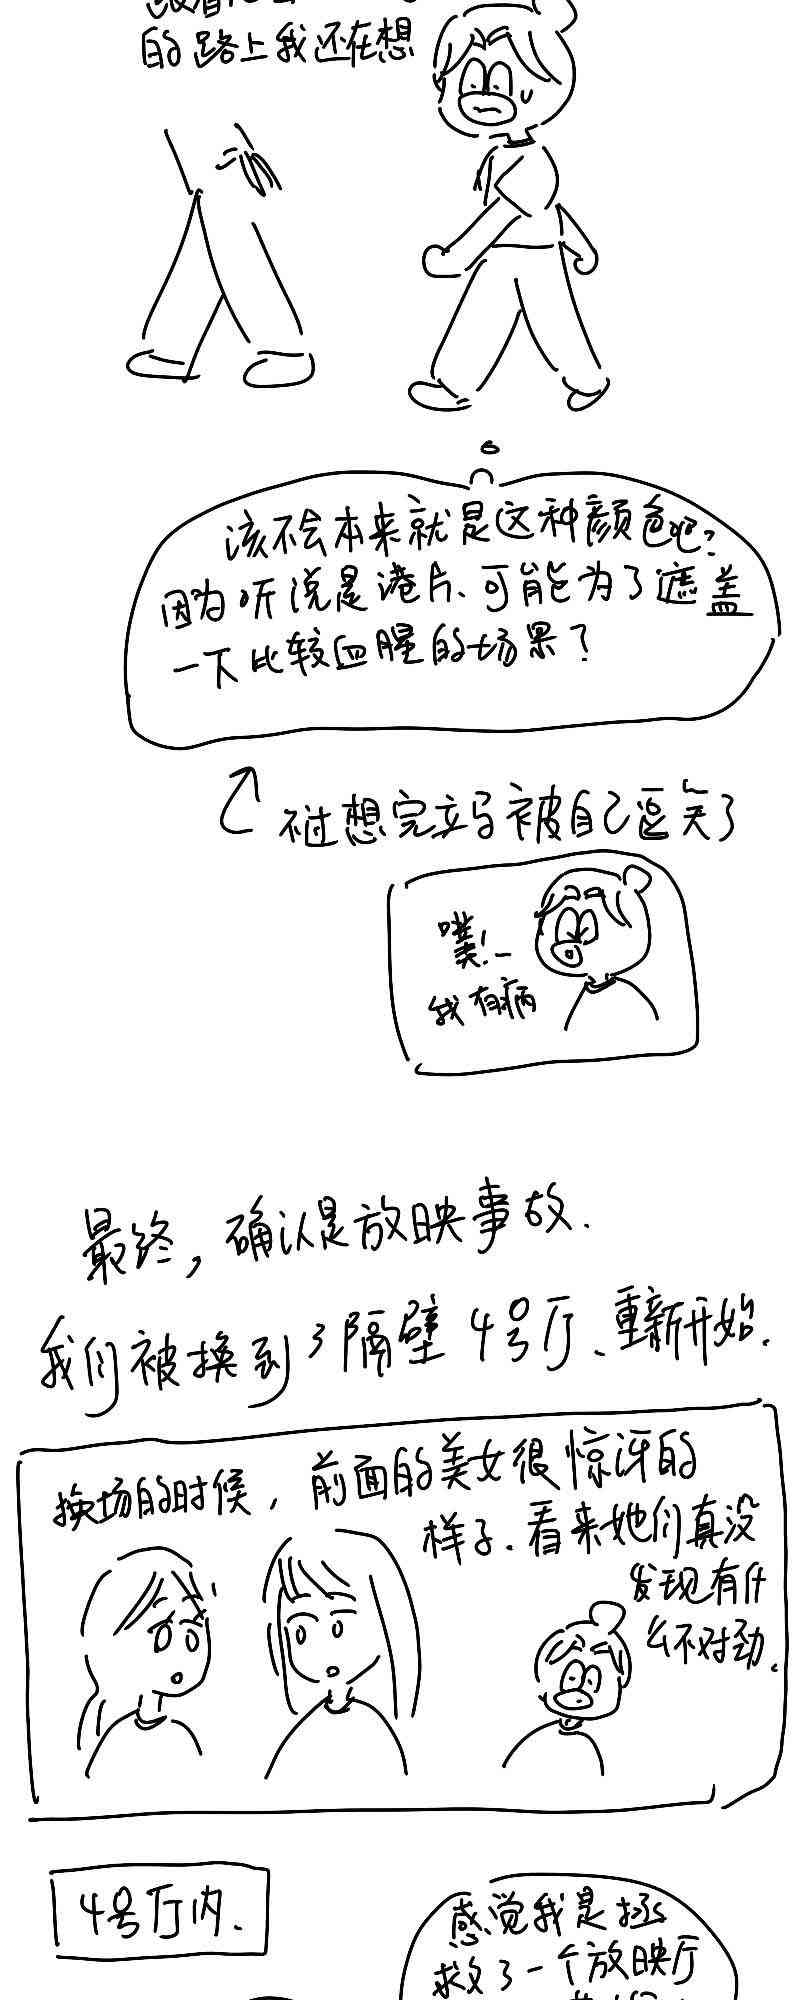 的路上我还在想
该不会本来就是这种颜色吧?
因为听说是港片、可能为了遮盖
一下比较血腥的场景?
不过想完立马被自己逗笑了
噗!
我有病
最终,确认是放映事故.
我们被换到了隔壁4号厅、重新开始.
换场的时候,前面的美女很惊讶的
样子.看来她们真没
发现有什
么不对劲.
4号厅内.
感觉我是拯
救了一个放映厅